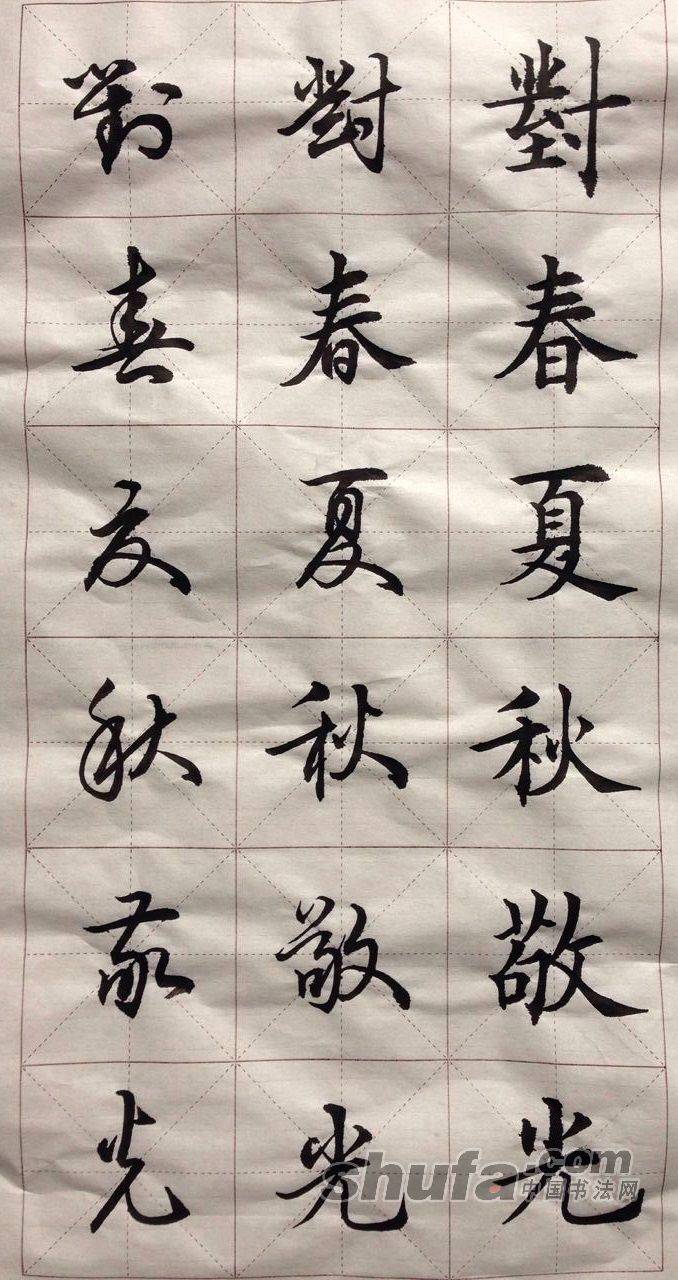 對春夏秋敬光
對春夏秋敬光
對春夏秋敬光
shufa.com
中国书法网